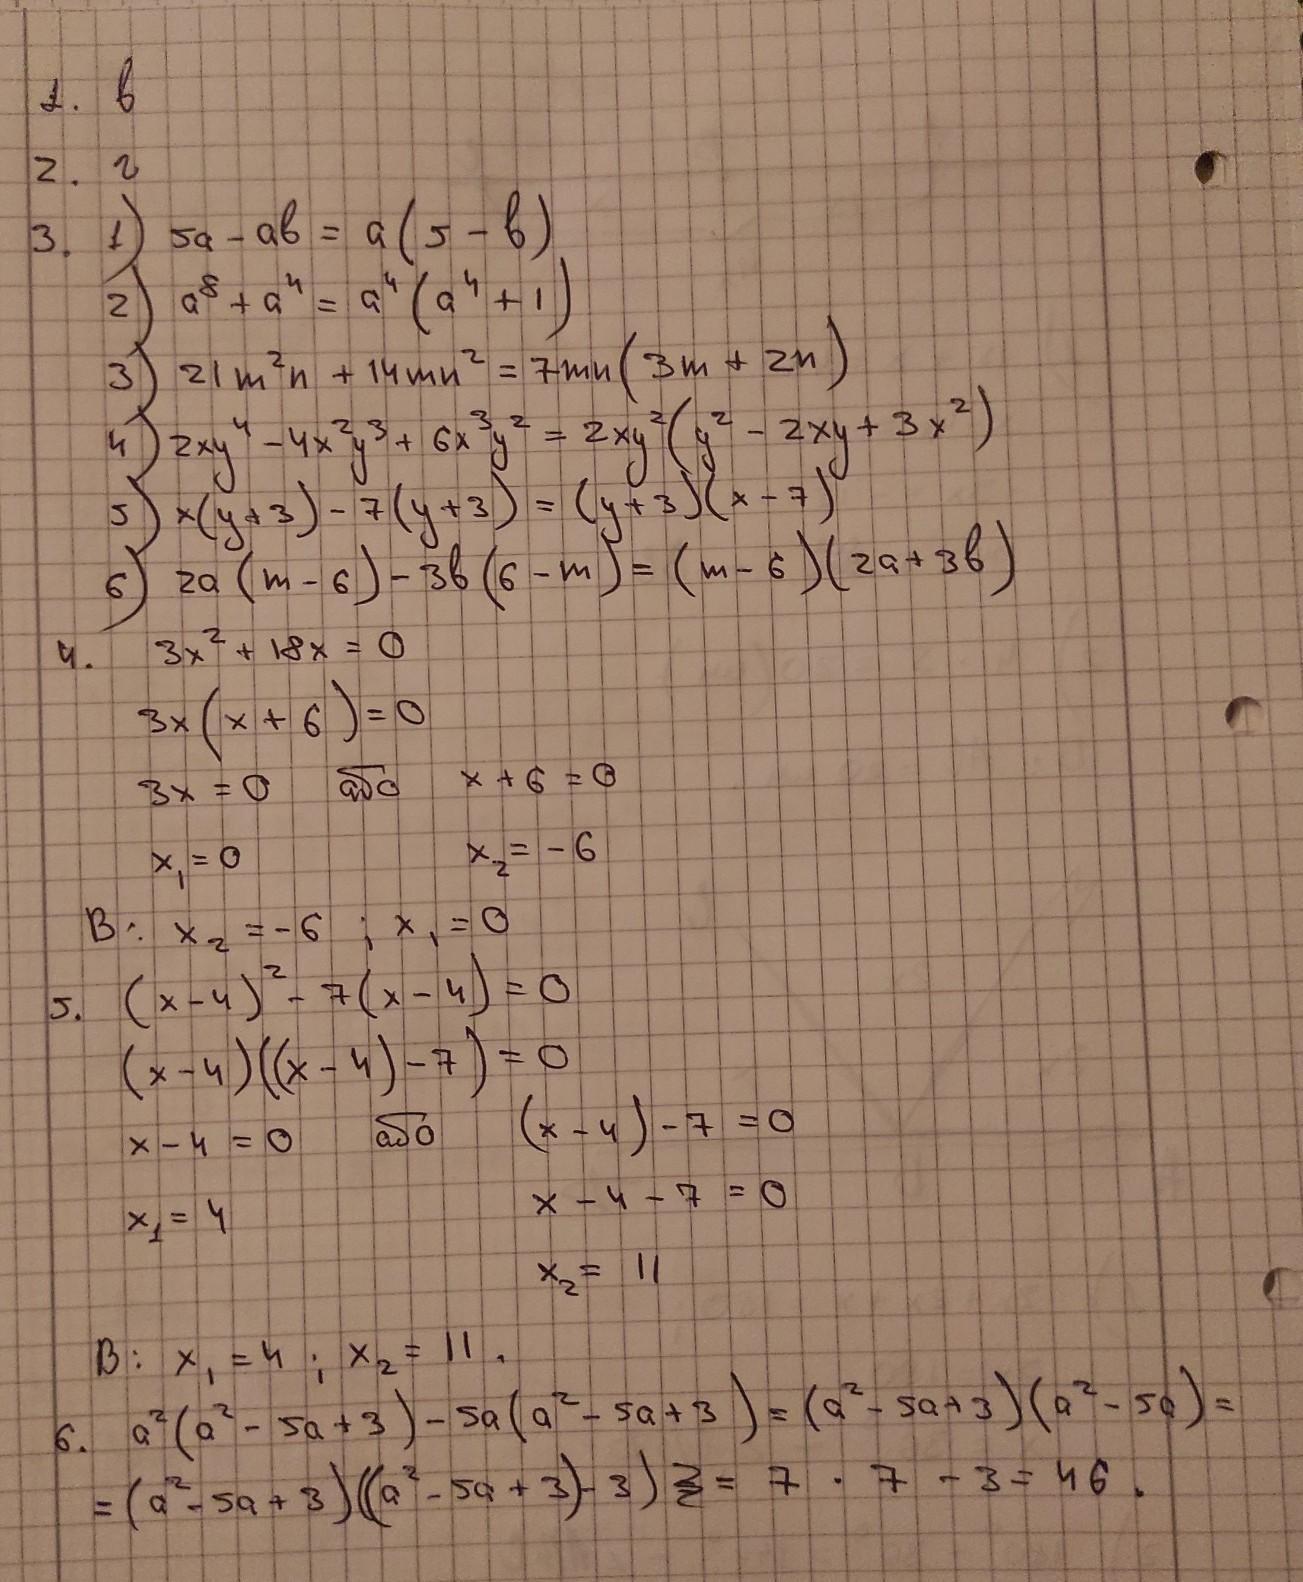 1. в
2. г
3. 1) 5a - ab = a(5 - b)
2) a⁸ + a⁴ = a⁴(a⁴ + 1)
3) 21m²n + 14mn² = 7mn(3m + 2n)
4) 2xy⁴ - 4x²y³ + 6x³y² = 2xy²(y² - 2xy + 3x²)
5) x(y+3) - 7(y+3) = (y+3)(x-7)
6) 2a(m-6) - 3b(6-m) = (m-6)(2a+3b)
4. 3x² + 18x = 0
3x(x + 6) = 0
3x = 0 або x + 6 = 0
x₁ = 0 x₂ = -6
В: x₂ = -6 ; x₁ = 0
5. (x-4)² - 7(x-4) = 0
(x-4)((x-4)-7) = 0
x - 4 = 0 або (x-4) - 7 = 0
x - 4 - 7 = 0
x₁ = 4
x₂ = 11
В: x₁ = 4 ; x₂ = 11.
6. a²(a² - 5a + 3) - 5a(a² - 5a + 3) = (a² - 5a + 3)(a² - 5a) =
= (a² - 5a + 3)((a² - 5a + 3) - 3) = 7 · 7 - 3 = 46.